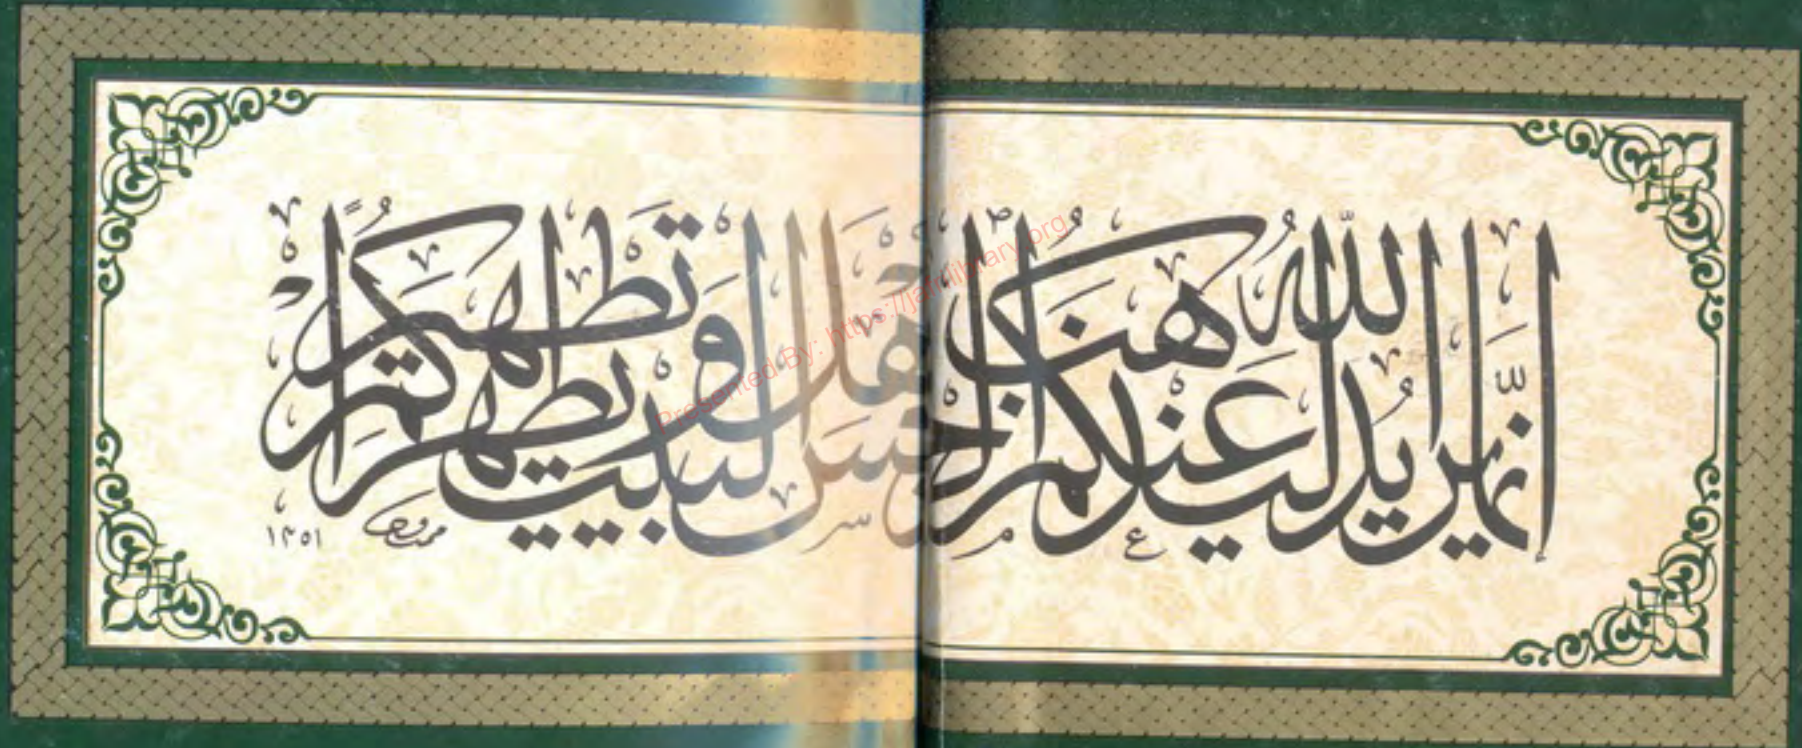 إنما يريد الله ليذهب عنكم الرجس أهل البيت ويطهركم تطهيرا
١٣٥١
Presented By: https://jafrilibrary.org